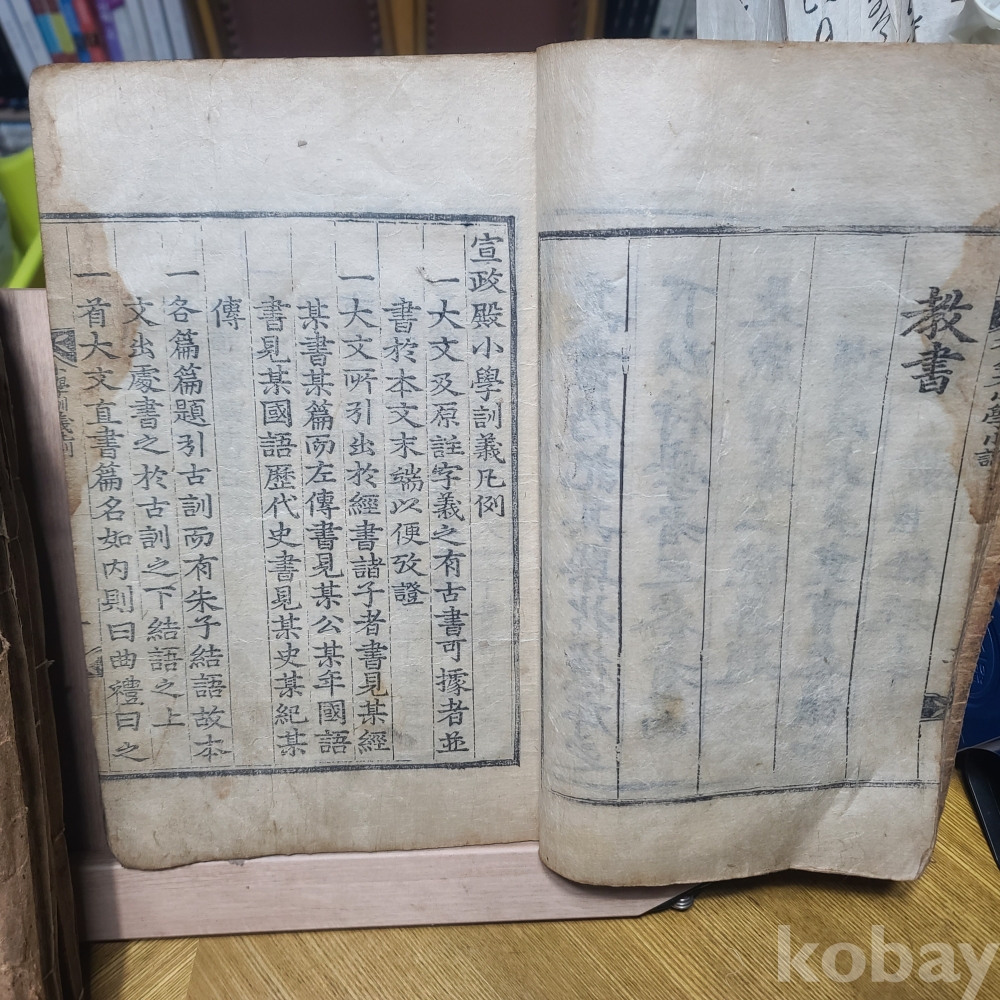 教書
宣政殿小學訓義凡例
一大文及原註字義之有古書可據者並
書於本文末端以便攷證
一大文所引出於經書諸子者書見某經
某書某篇而左傳書見某公某年國語
書見某國語歷代史書見某史某紀某
傳
一各篇篇題引古訓而有朱子結語故本
文出處書之於古訓之下結語之上
一首大文直書篇名如內則曰曲禮曰之
kobay